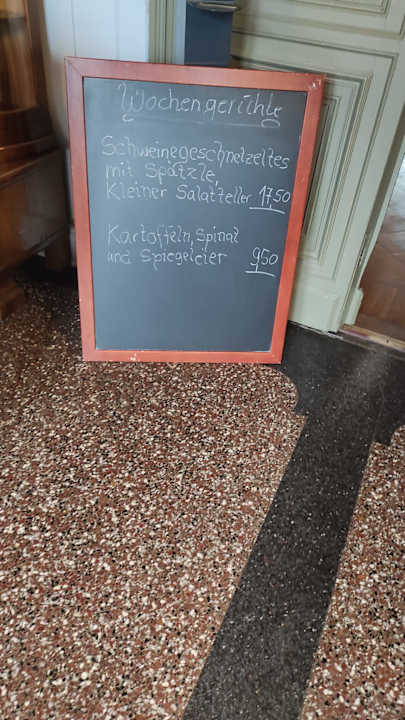 Wochengerichte
Schweinegeschnetzeltes
mit Spätzle,
Kleiner Salatteller 17,50
Kartoffeln, Spinat
und Spiegeleier 9,50